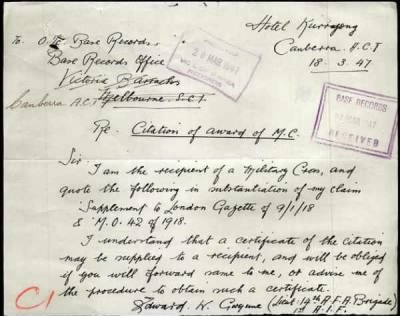 Hotel Kurrajong
Canberra. A.C.T
18. 3. 47
To O I/c Base Records
Base Records Office
Victoria Barracks
Melbourne. S.C.1.
Canberra A.C.T.
MAR 1947
BASE RECORDS
MAR 1947
RECEIVED
Re. Citation of award of M.C.
Sir
I am the recipient of a Military Cross, and
quote the following in substantiation of my claim
Supplement to London Gazette of 9/1/18
& M.O. 42 of 1918.
I understand that a certificate of the citation
may be supplied to a recipient, and will be obliged
if you will forward same to me, or advise me of
the procedure to obtain such a certificate.
Edward W. Gwynne (Lieut. 14th A.F.A. Brigade)
1st A.I.F.
C1